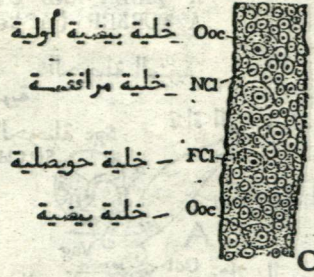 خلية بيضية أولية Ooc
خلية مرافقة NCl
خلية حويصلية - FCl
خلية بيضية - Ooc
C